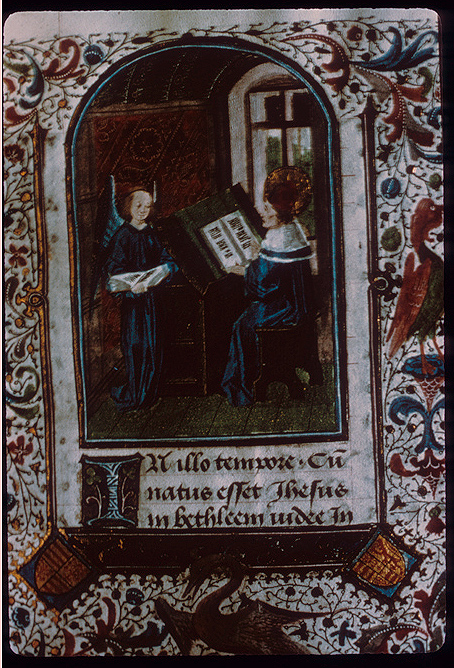 IN illo tempore · Cū
natus esset Jhesus
in bethleem iudee In